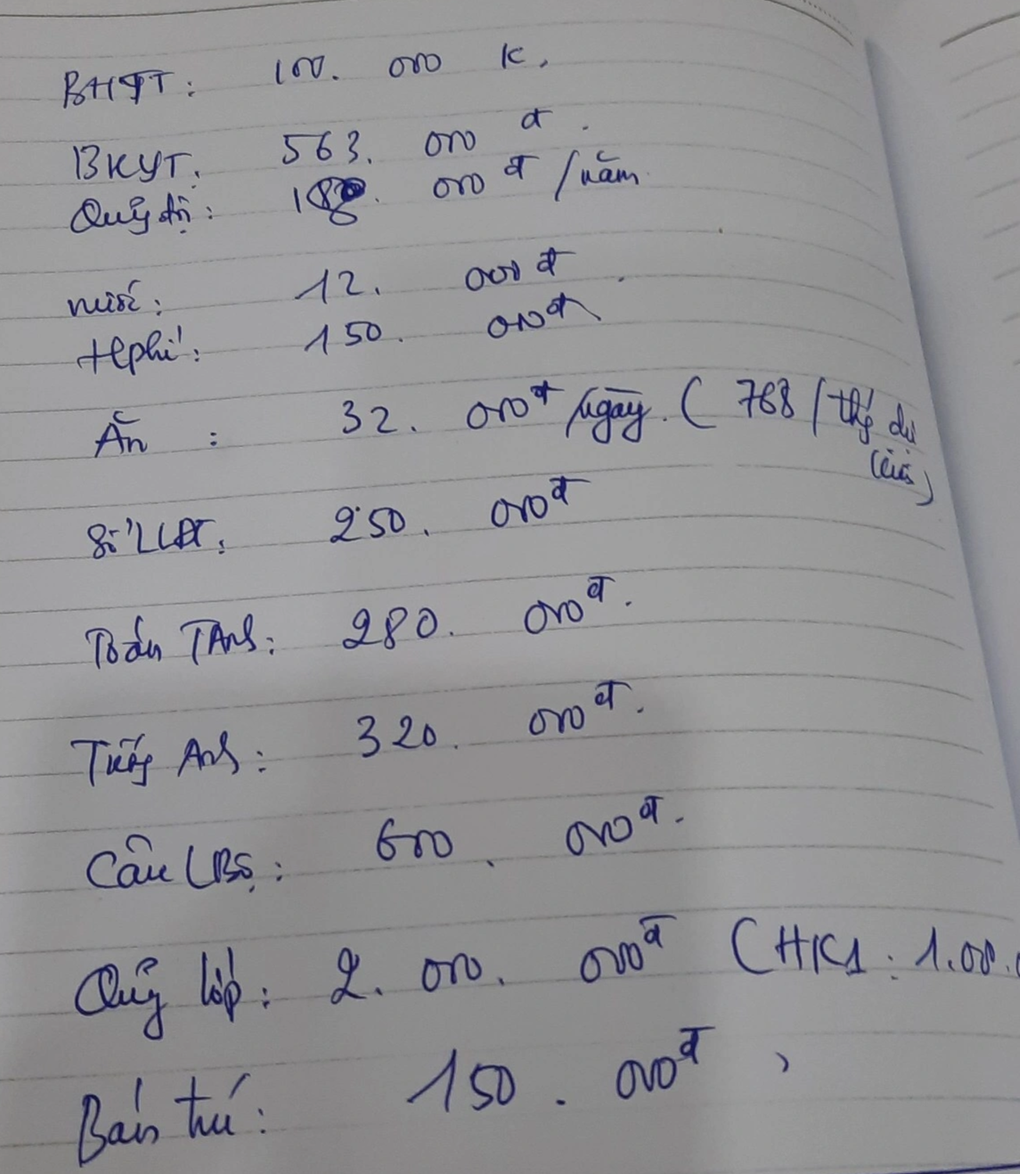 BHTT: 100. 000 k.
BKYT. 563. 000 đ.
Quỹ đội: 18. 000 đ /năm
nước: 12. 000 đ
Hphí: 150. 000đ
Ăn : 32. 000đ /ngày. ( 768 / thg
250. 000đ
Toán TAnh: 280. 000đ.
Tiếng Anh: 320. 000đ.
Câu LBộ: 600. 000đ.
Quỹ lớp: 2. 000. 000đ (HK1: 1.00.
Bán trú: 150. 000đ,